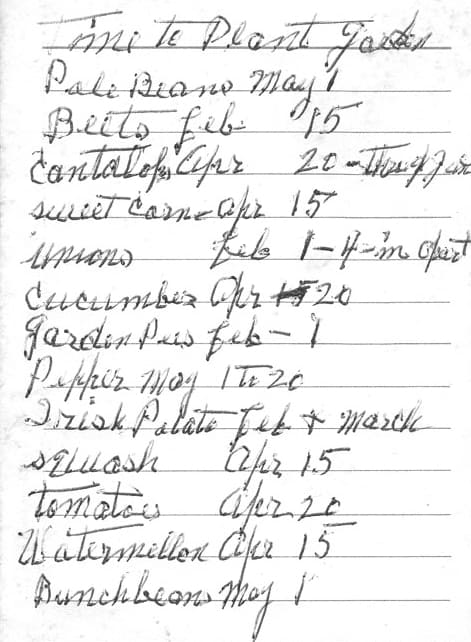 Time to Plant Garden
Pole Beans May 1
Beets Feb- 15
Cantalops Apr 20-Thru Jun
sweet Corn- Apr 15
unions Feb 1-4-in apart
Cucumber Apr 20
Garden Pees Feb-1
Pepper May 1 to 20
Irish Potato Feb + March
squash Apr 15
tomatoes Apr. 20
Watermellon Apr 15
Bunchbeans May 1